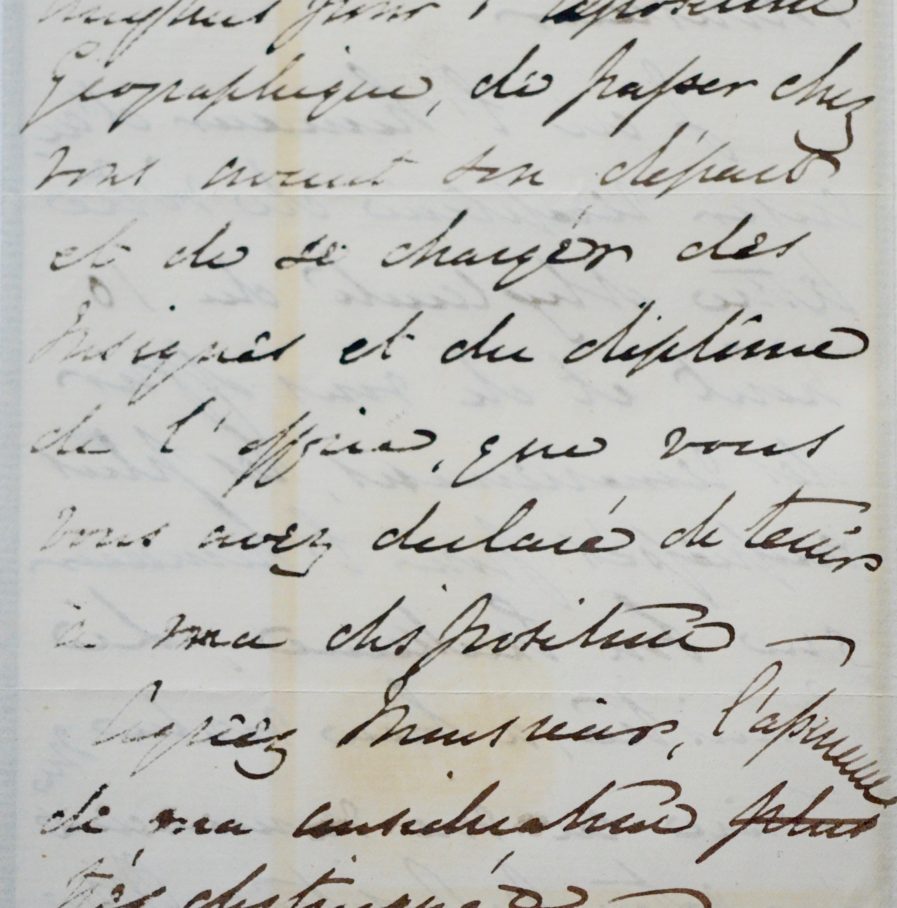 pour l'exposition
Géographique, de passer chez
vous avant son départ
et de se charger des
Insignes et du diplôme
de l'office, que vous
vous avez declaré de tenir
à ma disposition —
Agréez Monsieur, l'assurance
de ma consideration plus
très distinguée